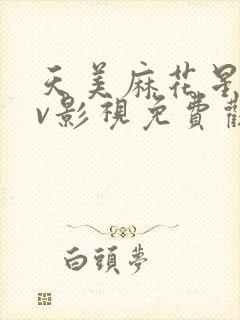 天美麻花星
v影視免費觀
白頭夢